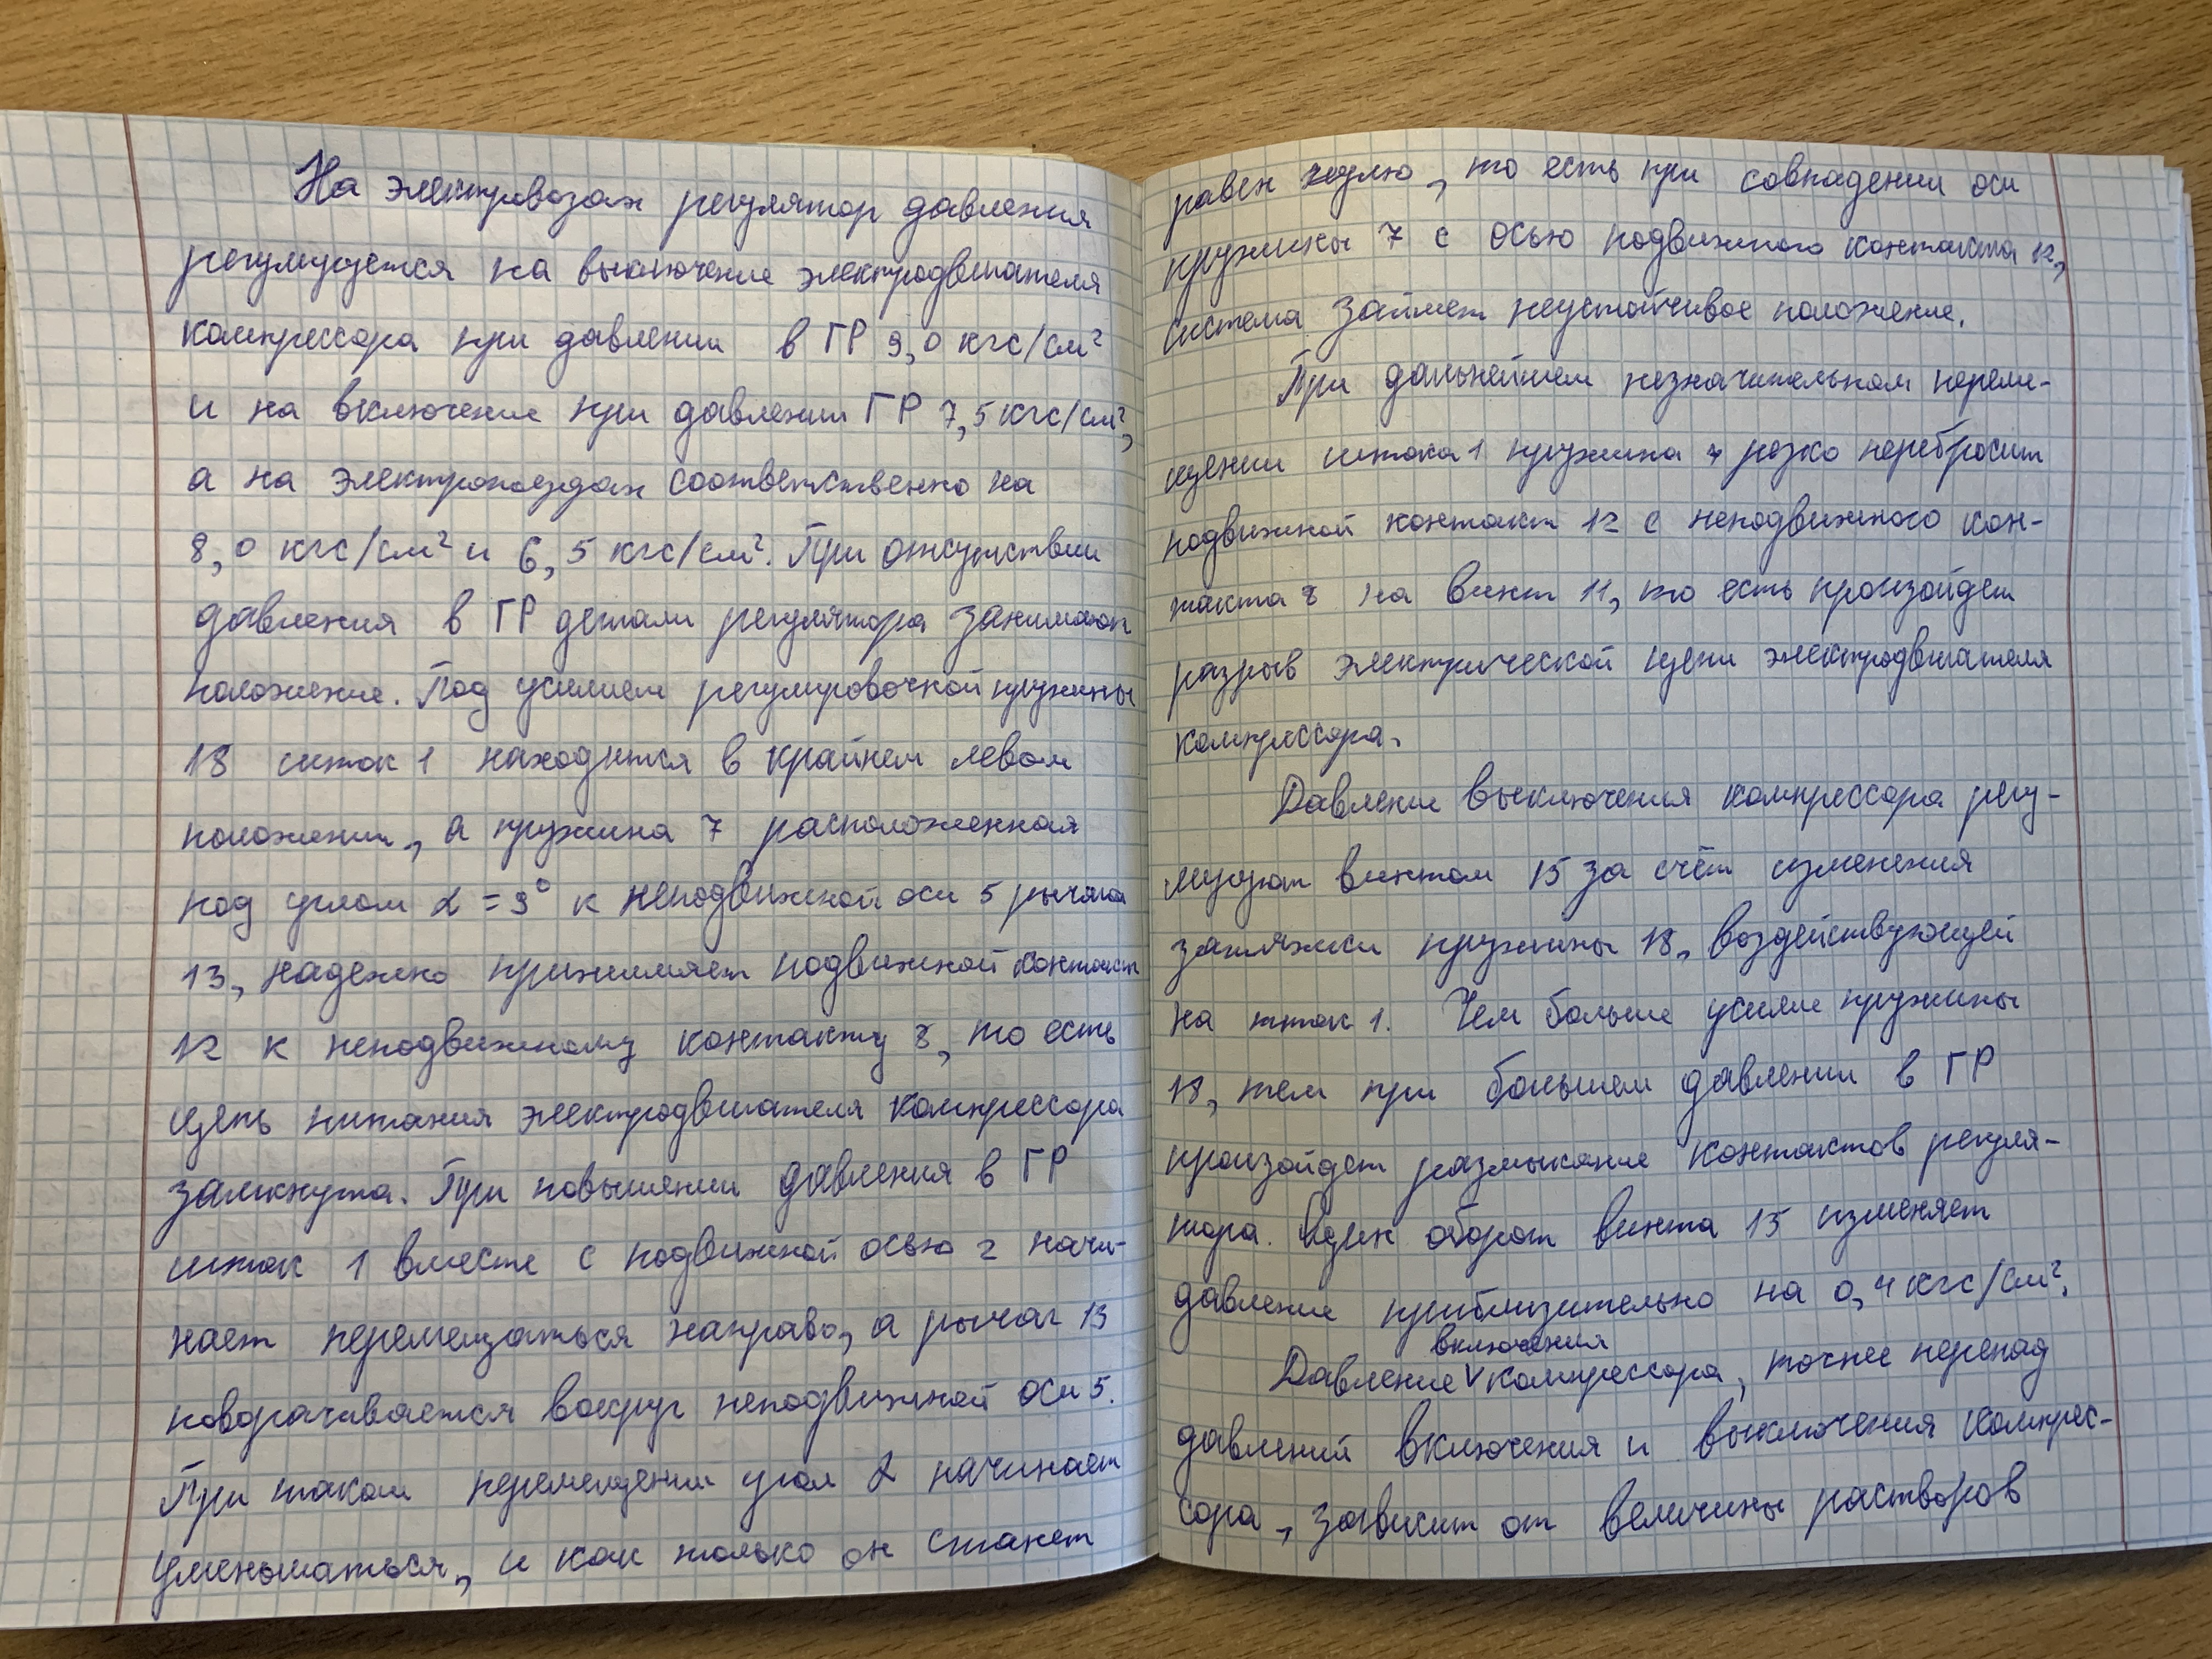 На электровозах регулятор давления
регулируется на выключение электродвигателя
компрессора при давлении в ГР 9,0 кгс/см²
и на включение при давлении ГР 7,5 кгс/см²,
а на электропоездах соответственно на
8,0 кгс/см² и 6,5 кгс/см². При отсутствии
давления в ГР детали регулятора занимают
положение. Под усилием регулировочной пружины
18 шток 1 находится в крайнем левом
положении, а пружина 7 расположенная
под углом α = 9° к неподвижной оси 5 рычага
13, надежно прижимает подвижной контакт
12 к неподвижному контакту 8, то есть
цепь питания электродвигателя компрессора
замкнута. При повышении давления в ГР
шток 1 вместе с подвижной осью 2 начи-
нает перемещаться направо, а рычаг 13
поворачивается вокруг неподвижной оси 5.
При таком перемещении угол α начинает
уменьшаться, и как только он станет
равен нулю, то есть при совпадении оси
пружины 7 с осью подвижного контакта 12,
система займет неустойчивое положение.
При дальнейшем незначительном переме-
щении штока 1 пружина 7 резко перебросит
подвижной контакт 12 с неподвижного кон-
такта 8 на винт 11, то есть произойдет
разрыв электрической цепи электродвигателя
компрессора.
Давление выключения компрессора регу-
лируют винтом 15 за счёт изменения
затяжки пружины 18, воздействующей
на шток 1. Чем больше усилие пружины
18, тем при большем давлении в ГР
произойдет размыкание контактов регуля-
тора. Один оборот винта 15 изменяет
давление приблизительно на 0,4 кгс/см².
Давление включения компрессора, точнее перепад
давлений включения и выключения компрес-
сора, зависит от величины растворов